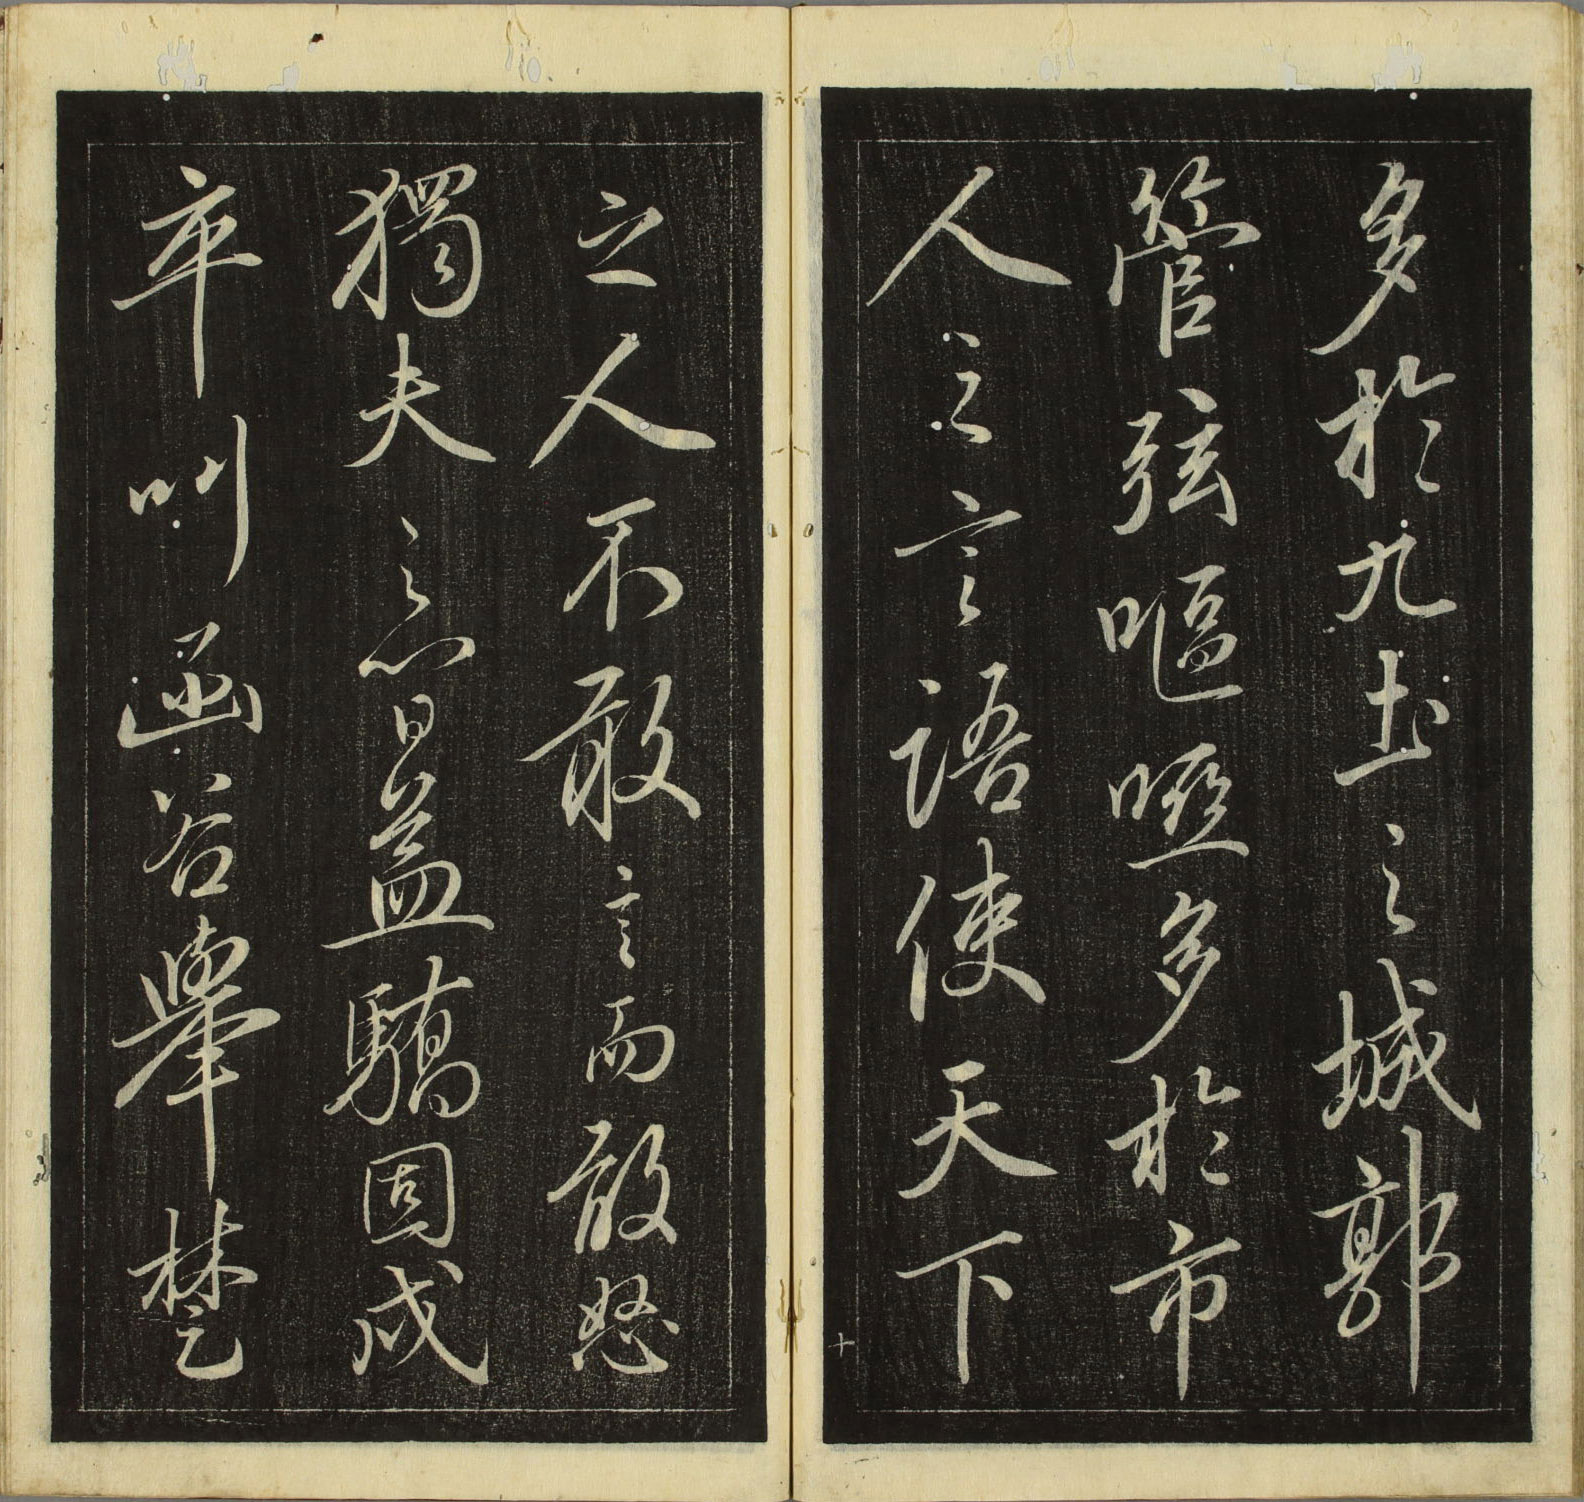 多於九土之城郭
管弦嘔啞多於市
人之言語使天下
十
之人不敢言而敢怒
獨夫之心日益驕固戍
卒叫函谷舉楚